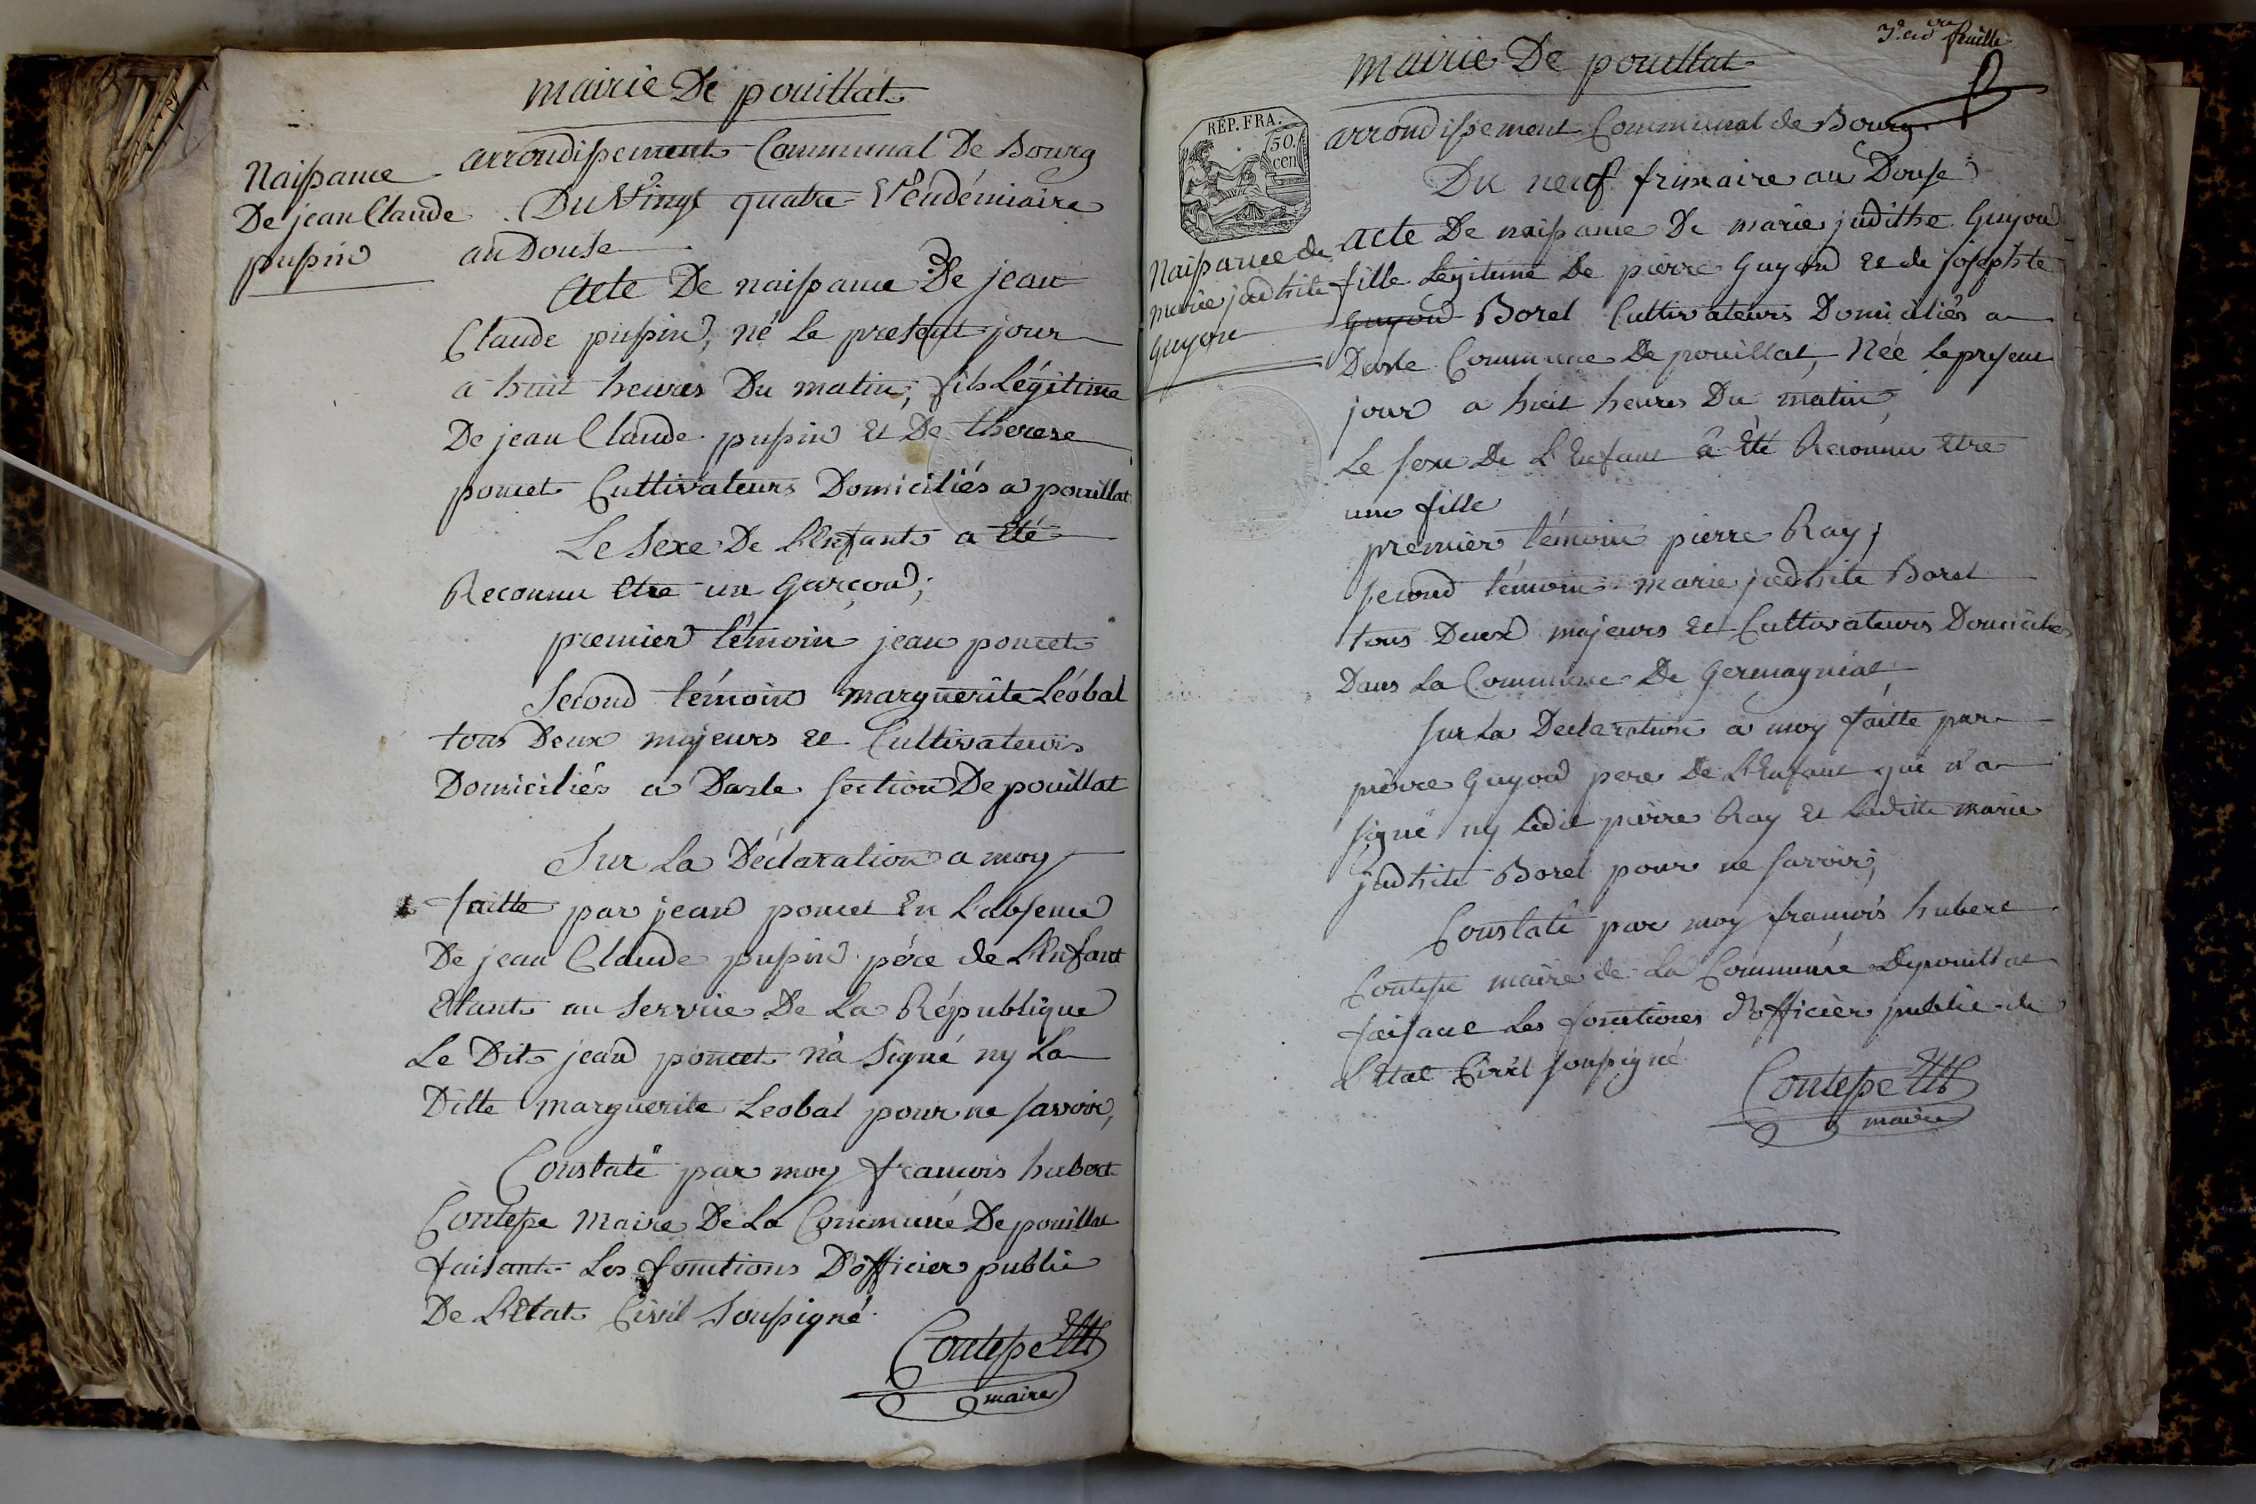 mairie De pouillat
Naissance
De jean Claude
pupin
arrondissement Communal De Bourg
Du Vingt quatre Vendémiaire
an Douse
Acte De naissance De jean
Claude pupin, né le present jour
a huit heures Du matin, fils Légitime
De jean Claude pupin et De therese
poncet Cultivateurs Domiciliés a pouillat
Le Sexe De L'Enfant a Eté
Reconnu Etre un Garçon;
premier témoin jean poncet
Second témoins marguerite Léobal
tous Deux majeurs et Cultivateurs
Domiciliés a Dasle section De pouillat
Sur La Déclaration a moy
faitte par jean poncet En L'absence
De jean Claude pupin pére de L'Enfant
Etant au Service De La République
Le Dit jean poncet n'a Signé ny La
Ditte marguerite Leobal pour ne savoir,
Constaté par moy francois hubert
Contesse Maire De La Commune De pouillat
faisant Les fonctions D'officier public
De L'Etat Civil Soussigné
Contesse
maire
3e feuille
mairie De pouillat
RÉP. FRA.
50.
cen
arrondissement Communal de Bourg
Du neuf frimaire an Douse
Naissance de
marie judhite
Guyon
Acte De naissance De marie judithe Guyon
fille Légitime De pierre Guyon et de josephte
Guyon Borel Cultivateurs Domiciliés a
Dasle Commune De pouillat, Née le present
jour a huit heures Du matin,
Le sexe De L'Enfant a Eté Reconnu Etre
une fille
premier témoin pierre Ray,
second témoin marie judhite Borel
tous Deux majeurs et Cultivateurs Domiciliés
Dans La Commune De Germagniat
sur La Declaration a moy faitte par
pierre Guyon pere De L'Enfant qui n'a
signé ny Ledit pierre Ray et Laditte marie
judhite Borel pour ne savoir,
Constaté par moy francois hubert
Contesse maire de La Commune De pouillat
faisant Les fonctions d'officier public de
L'Etat Civil soussigné
Contesse
maire